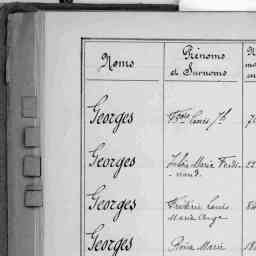 Noms
Prénoms
et Surnoms
N
Georges
Louis
Georges
Marie Ferdi-
-nand
22
Georges
Frédéric Louis
Marie Ange
Georges
Rosa Marie
18